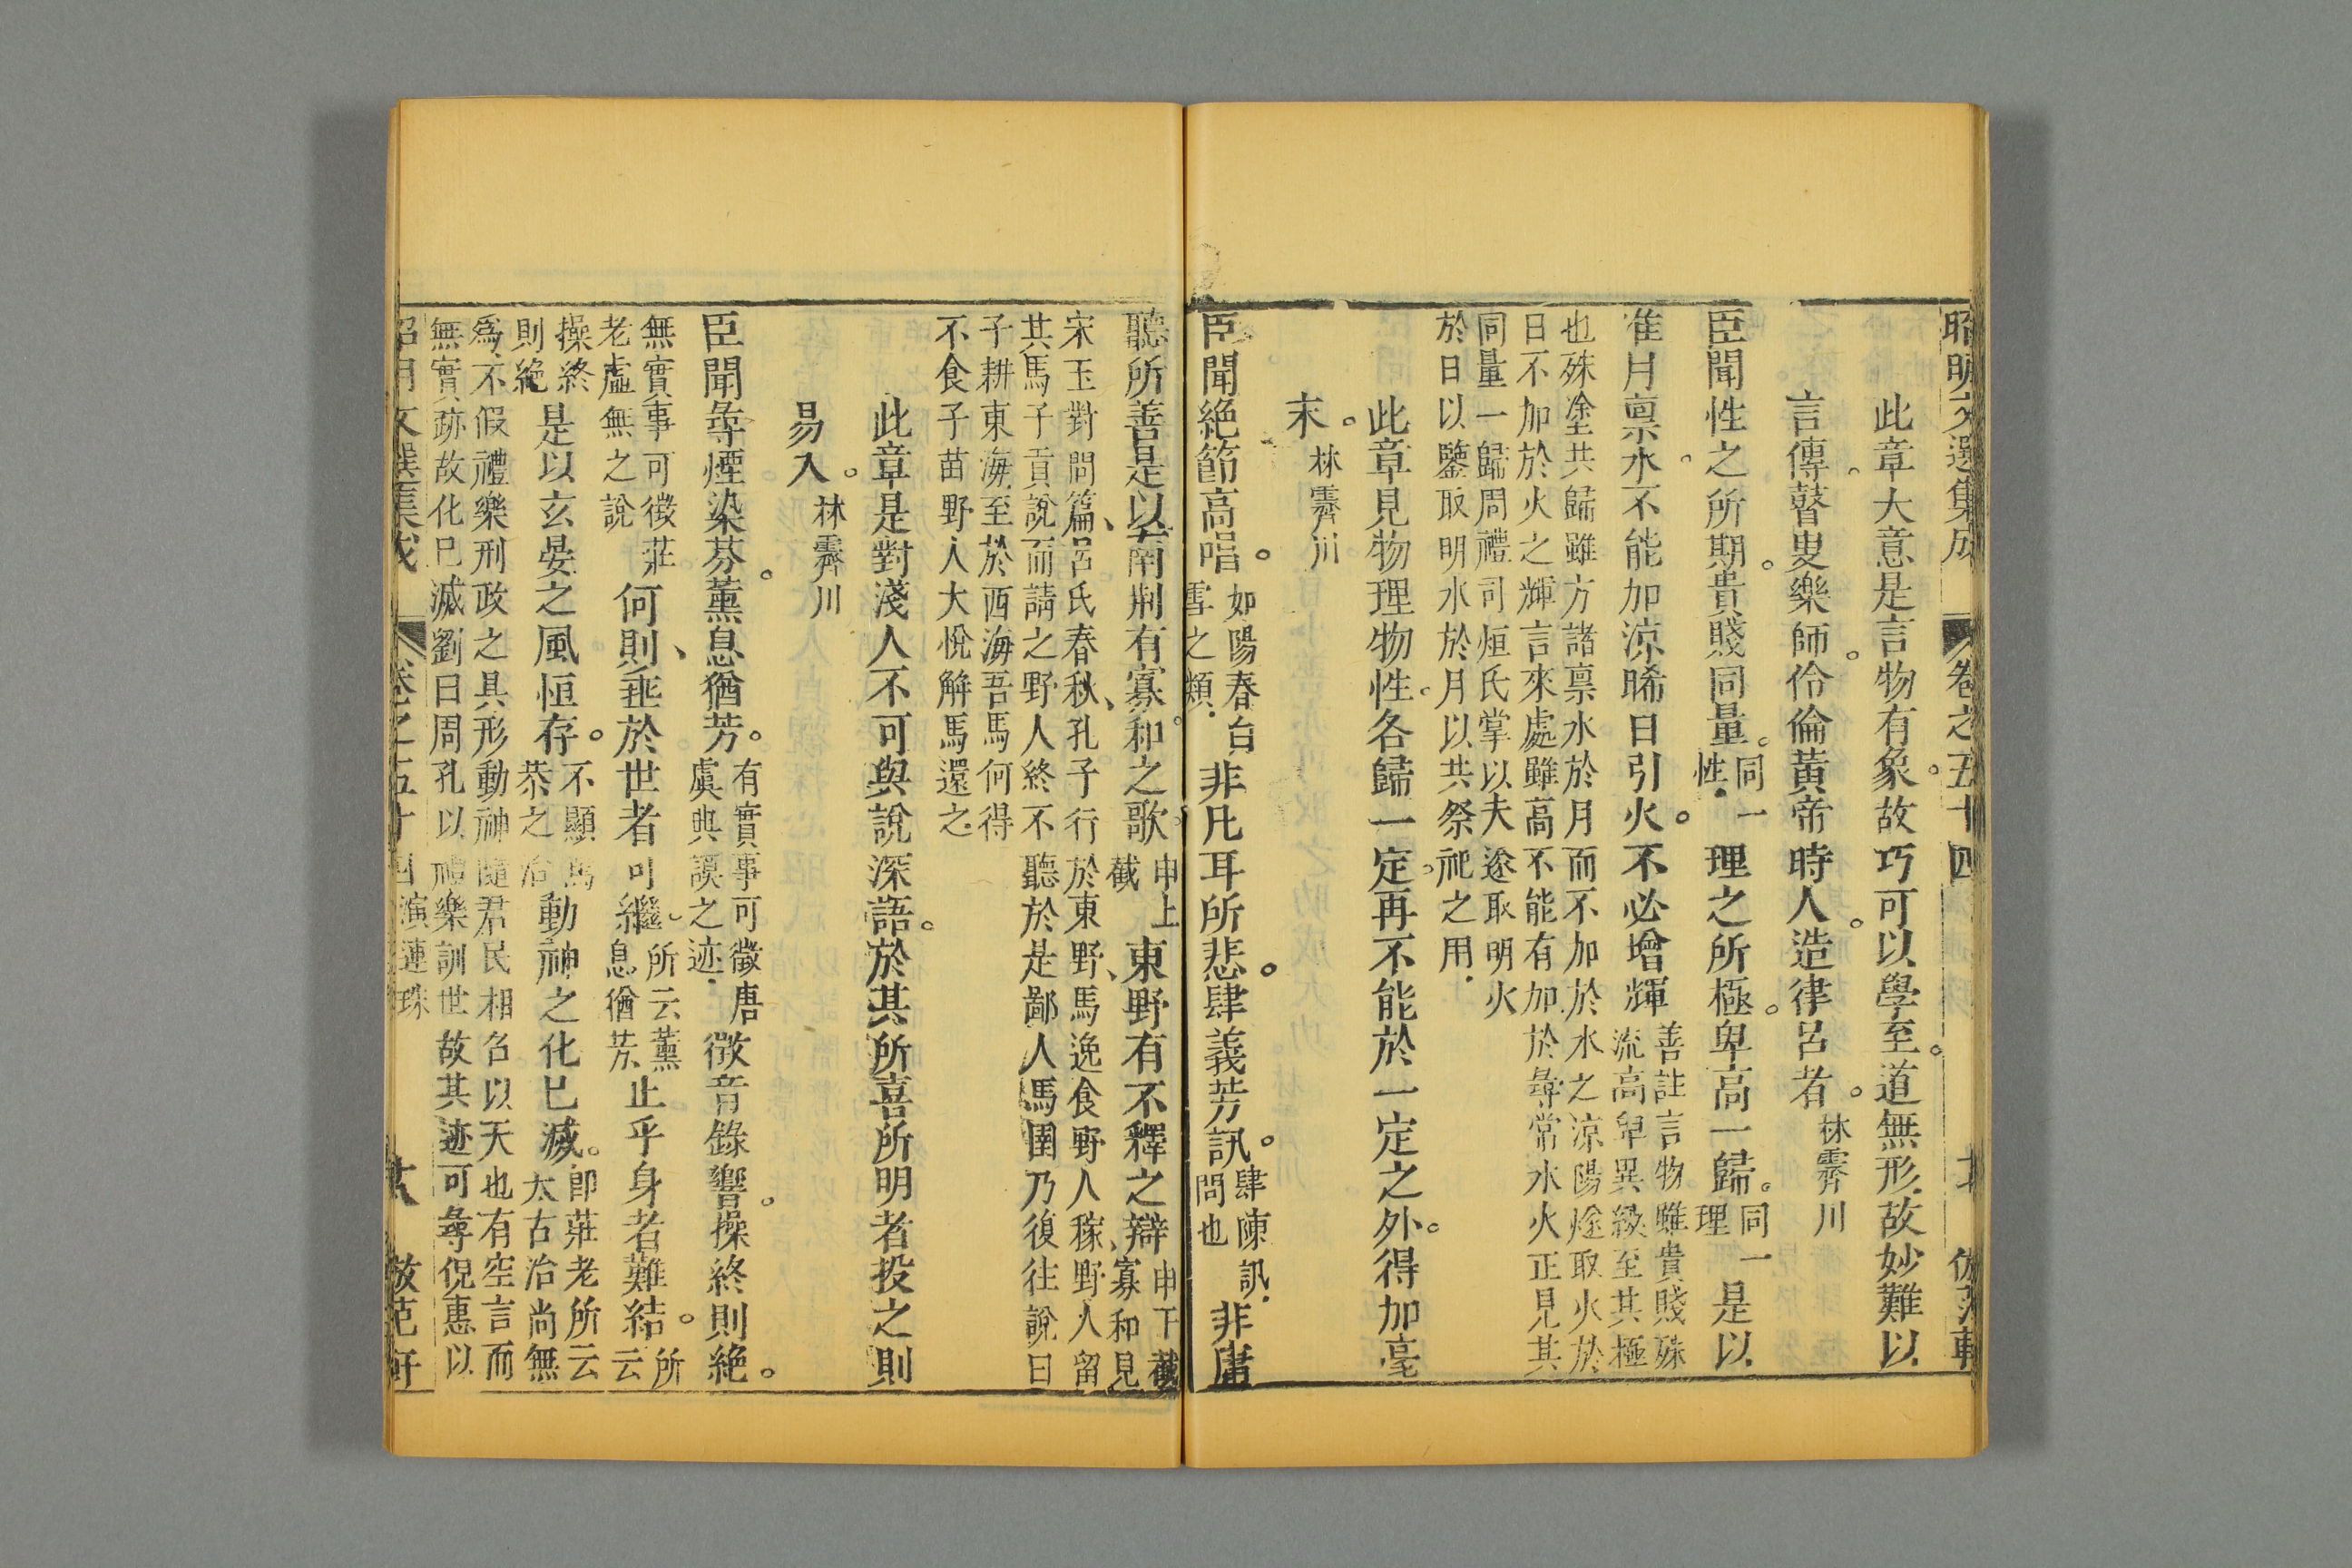 昭明文選集成 卷之五十四
此章大意是言物有象故巧可以學至道無形故妙難以
言傳瞽叟樂師伶倫黃帝時人造律呂者林霽川
臣聞性之所期貴賤同量同一性理之所極卑高一歸同一理是以
准月禀水不能加涼晞日引火不必增輝善註言物雖貴賤殊流高卑異級至其極
也殊塗共歸雖方諸禀水於月而不加於水之涼陽燧取火於
日不加於火之輝言來處雖高不能有加於尋常水火正見其
同量一歸周禮司烜氏掌以夫遂取明火
於日以鑒取明水於月以共祭祀之用
此章見物理物性各歸一定再不能於一定之外得加毫
末林霽川
臣聞絶節高唱如陽春白雪之類非凡耳所悲肆義芳訊肆陳訊問也非庸
聽所善是以南荆有寡和之歌申上截東野有不釋之辯申下截寡和見
宋玉對問篇呂氏春秋孔子行於東野馬逸食野人稼野人留
其馬子貢說而請之野人終不聽於是鄙人馬圉乃復往說曰
子耕東海至於西海吾馬何得
不食子苗野人大悅解馬還之
此章是對淺人不可與說深語於其所喜所明者投之則
易入林霽川
臣聞尋煙染芬薰息猶芳有實事可徵唐虞典謨之迹徴音錄響操終則絶
無實事可徵莊老虛無之說何則垂於世者可繼所云薰息猶芳止乎身者難結所云
操終則絶是以玄晏之風恒存不顯篤恭之治動神之化已滅卽莊老所云太古治尚無
爲不假禮樂刑政之具形動神隨君民相名以天也有空言而
無實跡故化已滅劉曰周孔以禮樂訓世故其迹可尋倪惠以
昭明文選集成 卷之五十四 演連珠 六 倣范軒